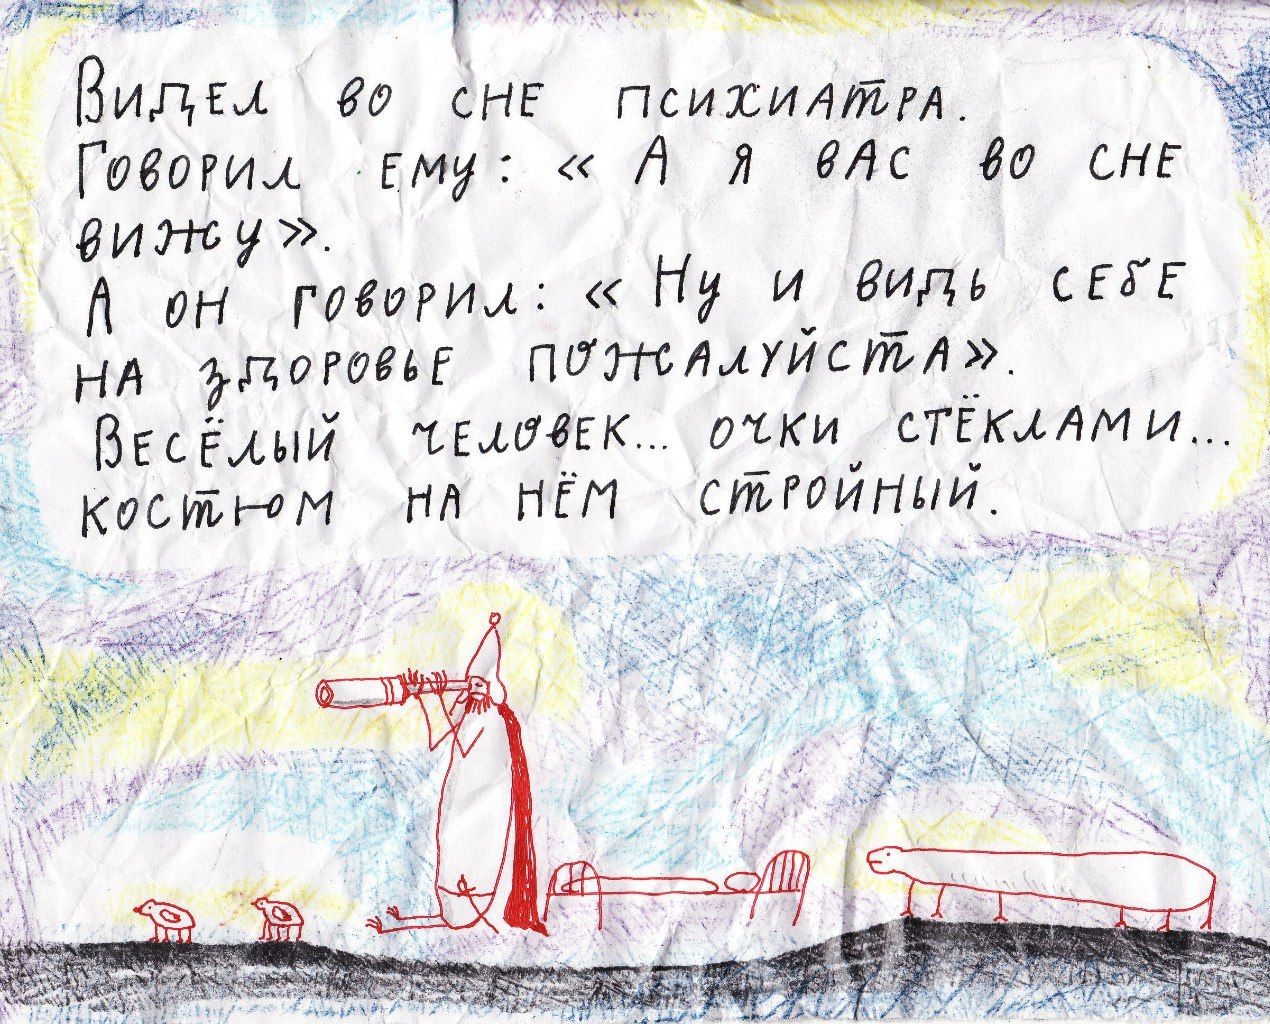 Видел во сне психиатра.
Говорил ему: «А я вас во сне
вижу».
А он говорил: «Ну и видь себе
на здоровье пожалуйста».
Весёлый человек... очки стёклами...
костюм на нём стройный.